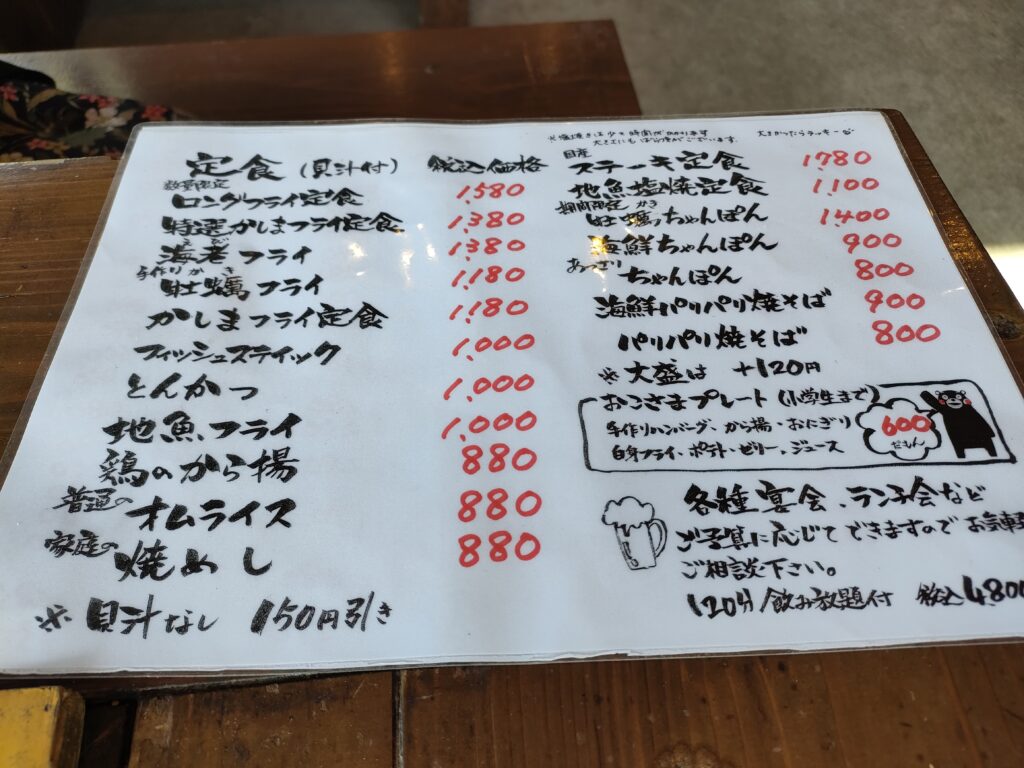 定食(貝汁付) 税込価格
数量限定
ロングフライ定食 1,580
特選かしまフライ定食 1,380
えび
海老フライ 1,380
手作りかき
牡蠣フライ 1,180
かしまフライ定食 1,180
フィッシュスティック 1,000
とんかつ 1,000
地魚フライ 1,000
鶏のから揚 880
普通の
オムライス 880
家庭の
焼めし 880
※貝汁なし 150円引き
※塩焼きは少々時間がかかります
大きかったらラッキー
国産
ステーキ定食 1,780
地魚塩焼定食 1,100
期間限定 かき
牡蠣ちゃんぽん 1,400
海鮮ちゃんぽん 900
あっさり
ちゃんぽん 800
海鮮パリパリ焼そば 900
パリパリ焼そば 800
※大盛は +120円
おこさまプレート(小学生まで)
手作りハンバーグ、から揚・おにぎり
白身フライ、ポテト・ゼリー、ジュース
600
だモん
各種宴会、ランチ会など
ご予算に応じてできますのでお気軽
ご相談下さい。
120分飲み放題付 税込4,800